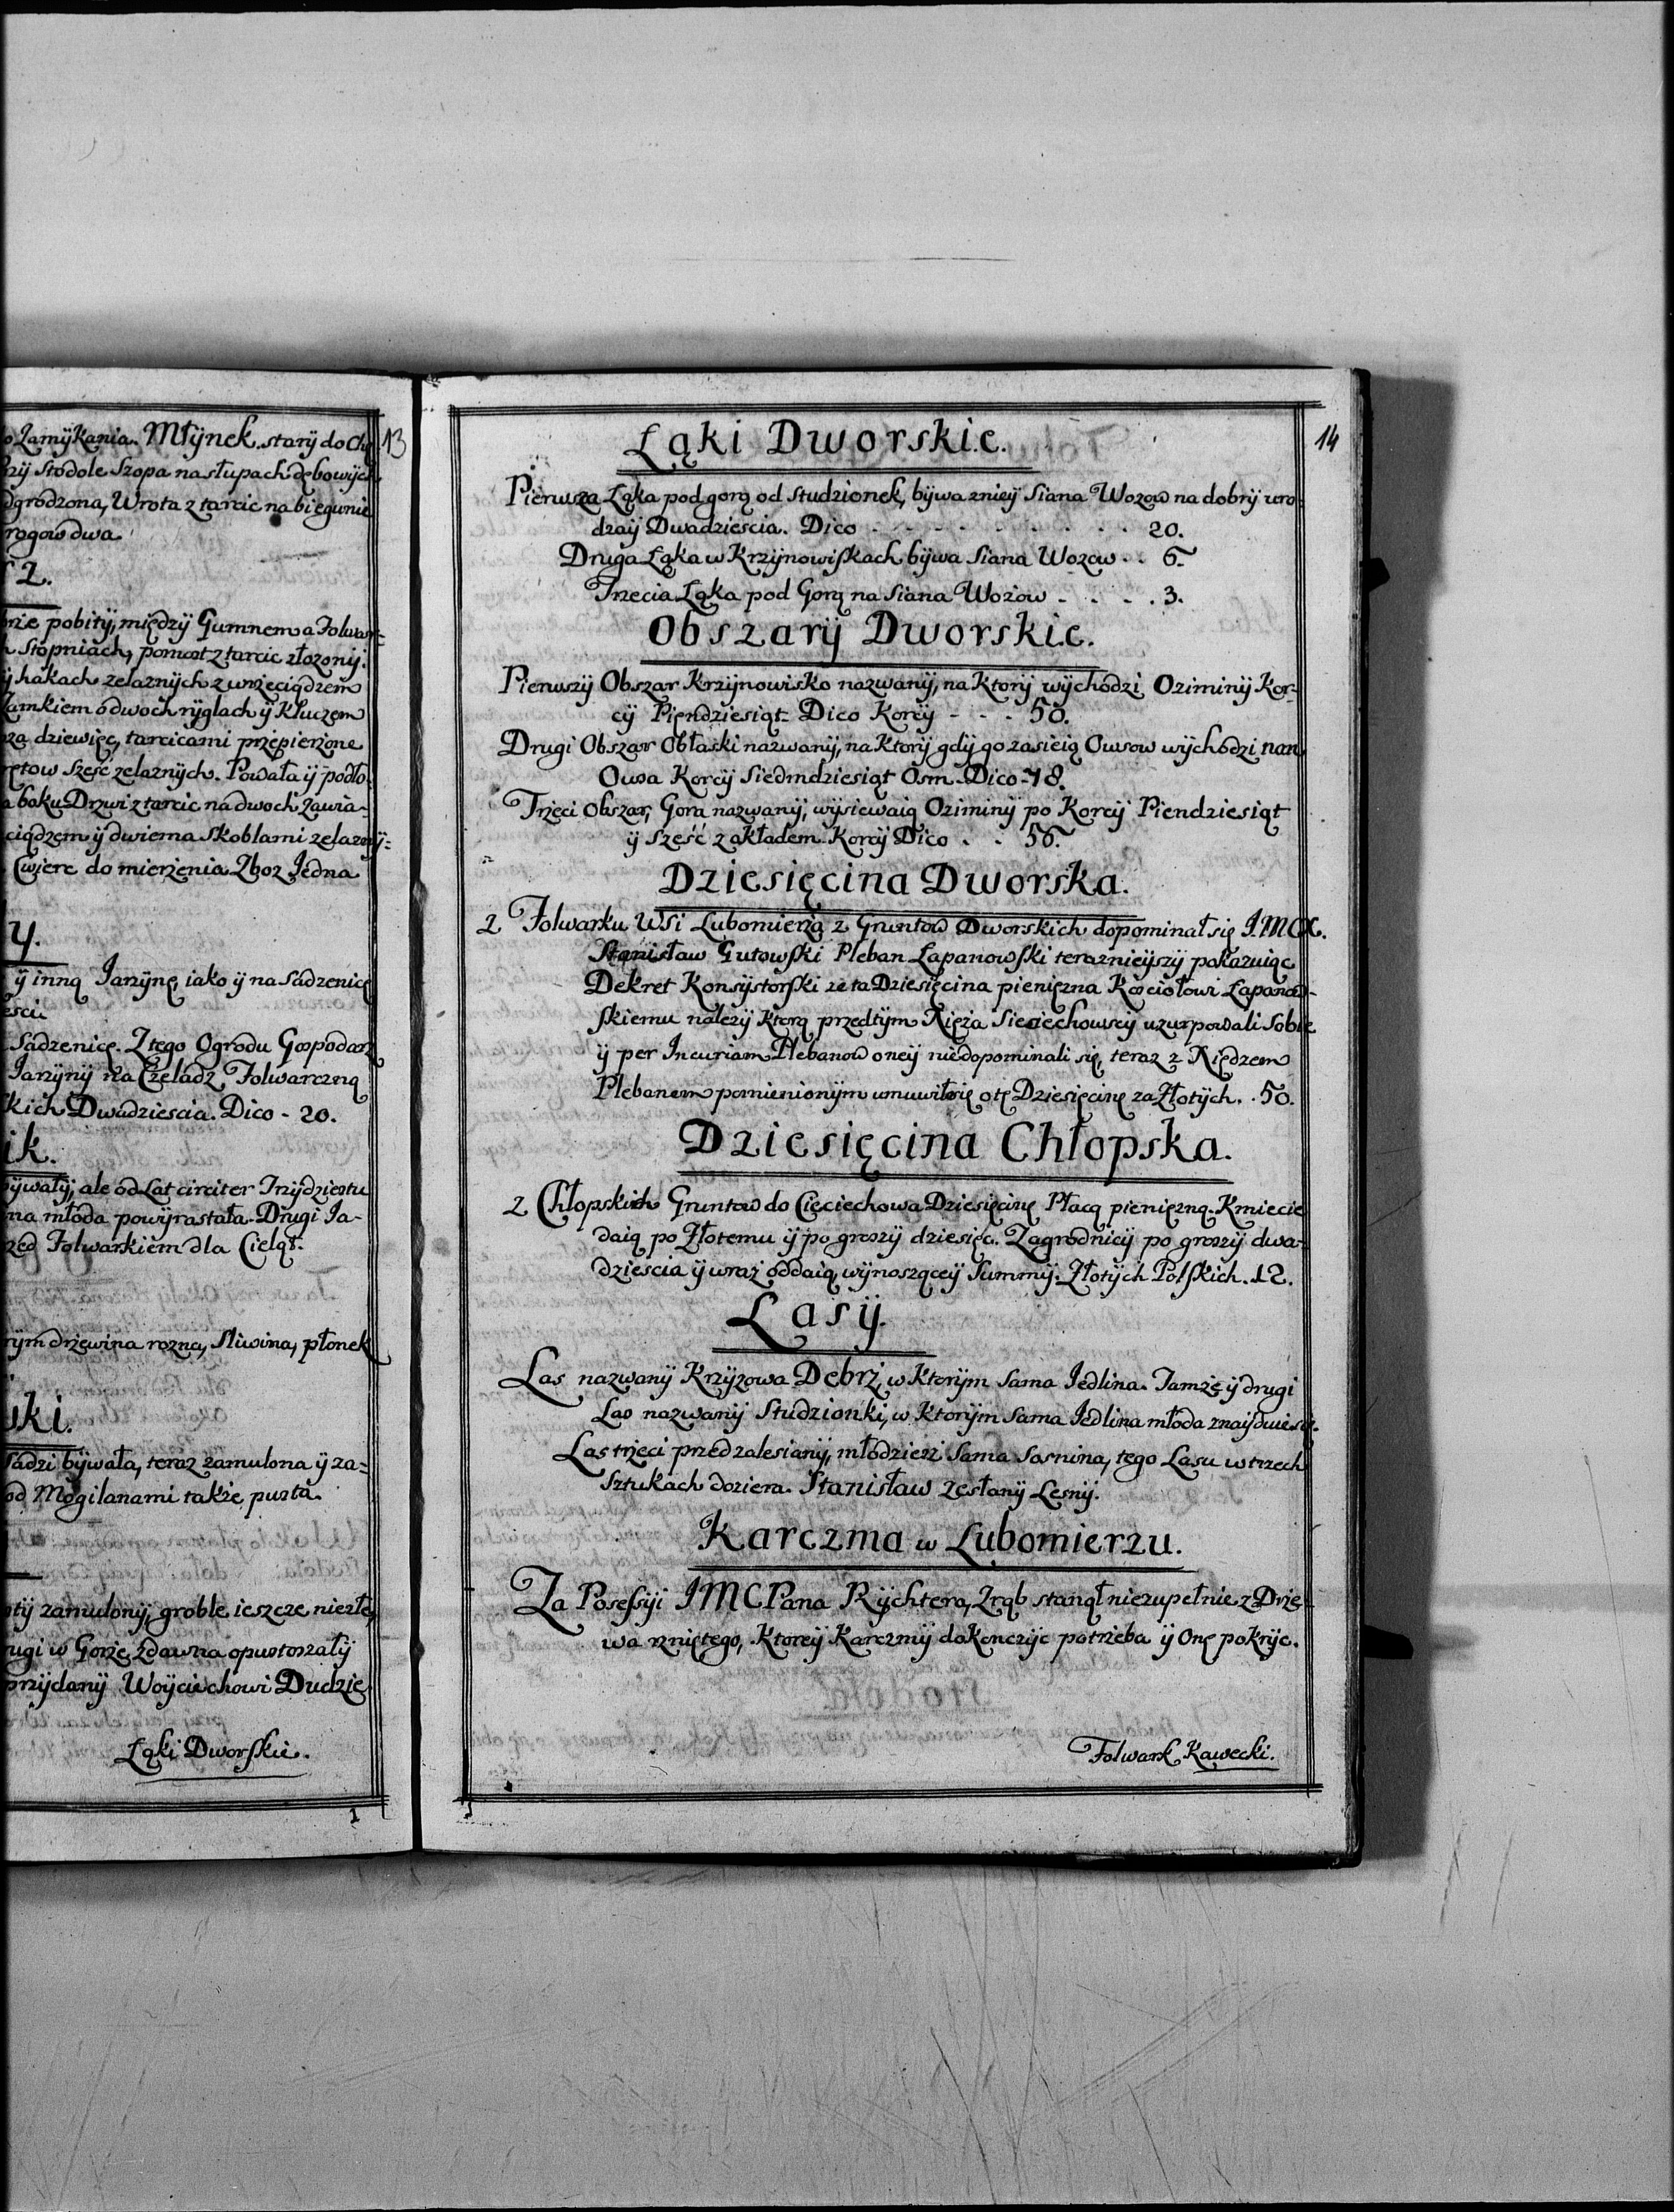 o Zamÿkania. Młÿnek starÿ do Chę 13
rzÿ Stodole Szopa na słupach dębowÿch
dgrodzona, Wrota z tarcic na biegunie
rogow dwa.
2.
rze pobitÿ, międzÿ Gumnem a Folwar-
Stopniach, pomost z tarcic złozonÿ.
ÿ hakach zelaznÿch z wrzeciądzem
Zamkiem o dwoch rÿglach ÿ Kluczem
za dziewięc, tarcicami przepierzone
ętow sześć zelaznÿch. Powała ÿ podło-
boku Drzwi z tarcic na dwoch Zawia-
ciądzem ÿ dwiema Skoblami zelaznÿ=
Cwierc do mierzenia Zboz Jedna
y.
ÿ inną Jarzÿnę, iako ÿ na Sadzenicę
esci.
Sadzenicę. Z tego Ogrodu Gospodarz
Jarzÿnÿ na Czeladz Folwarczną
kich Dwadziescia. Dico - 20.
ik.
bÿwałÿ, ale od Lat circiter Trzÿdziestu
na młoda powÿrastała. Drugi Ja-
zed Folwarkiem dla Cieląt.
rÿm drzewina rozna, Sliwina, płonek
ski.
Sadzi bÿwała, teraz zamulona ÿ za=
od Mogilanami także pusta.
tÿ zamulonÿ, groble ieszcze niezłe,
rugi w Gorze, zdawna opustoszałÿ
przÿdanÿ Woÿciechowi Dudzie.
Łąki Dworskie.
1
14
Łąki Dworskie.
Pierwsza Łąka pod gorą od Studzionek, bÿwa znieÿ Siana Wozow na dobrÿ uro-
dzaÿ Dwadziescia. Dico - - - - - - - - 20.
Druga Łąka w Krzÿnowiskach bÿwa Siana Wozow . . 6.
Trzecia Łąka pod Gorą na Siana Wozow - . - . 3.
Obszarÿ Dworskie.
Pierwszÿ Obszar Krzÿnowisko nazwanÿ, na Ktorÿ wÿchodzi Oziminÿ Kor-
cÿ Piendziesiąt. Dico Korcÿ - - - 50.
Drugi Obszar Obłaski nazwanÿ, na Ktorÿ gdÿ go zasieią Owsow wÿchodzi nan
Owsa Korcÿ Siedmdziesiąt Osm. Dico - 78.
Trzeci Obszar, Gora nazwanÿ, wÿsiewaią Oziminÿ po Korcÿ Piendziesiąt
ÿ Sześć z okładem. Korcÿ Dico . . 56.
Dziesięcina Dworska.
Z Folwarku WSi Lubomierza z Gruntow Dworskich dopominał się J.MCX.
Stanisław Gutowski Pleban Łapanowski teraznieÿszÿ pokazuiąc
Dekret Konsÿstorski ze ta Dziesięcina pienięzna Kościołowi Łapanow-
skiemu nalezÿ Ktorą przedtÿm Xięża Sieciechowscÿ uzurpowali Sobie
ÿ per Incuriam Plebanow oneÿ niedopominali się, teraz z Xiędzem
Plebanem pomienionÿm umuwiłosię o tę Dziesięcinę za Złotÿch. . 50.
Dziesięcina Chłopska.
Z Chłopskich Gruntow do Cieciechowa Dziesięcinę Płacą pienięzną. Kmiecie
daią po Złotemu ÿ po groszÿ dziesięc. Zagrodnicÿ po groszÿ dwa-
dziescia ÿ wraz oddaią, wÿnoszącеÿ Summÿ. Złotÿch Polskich. 12.
Lasÿ.
Las nazwanÿ Krzÿzowa Debrz, w Ktorÿm Sama Jedlina. Tamze ÿ drugi
Las nazwanÿ Studzionki, w Ktorÿm Sama Jedlina młoda znaÿduie się.
Las trzeci przed zalesianÿ, młodziez Sama Sosnina, tego Lasu w trzech
Sztukach doziera. Stanisław Zesłanÿ Lesnÿ.
Karczma w Lubomierzu.
Za Possessÿi JMC Pana Rÿchtera, Zrąb stanął niezupełnie z Drze-
wa rzniętego, Ktoreÿ Karczmÿ dokonczÿc potrzeba ÿ Onę pokrÿc.
Folwark Kawecki.